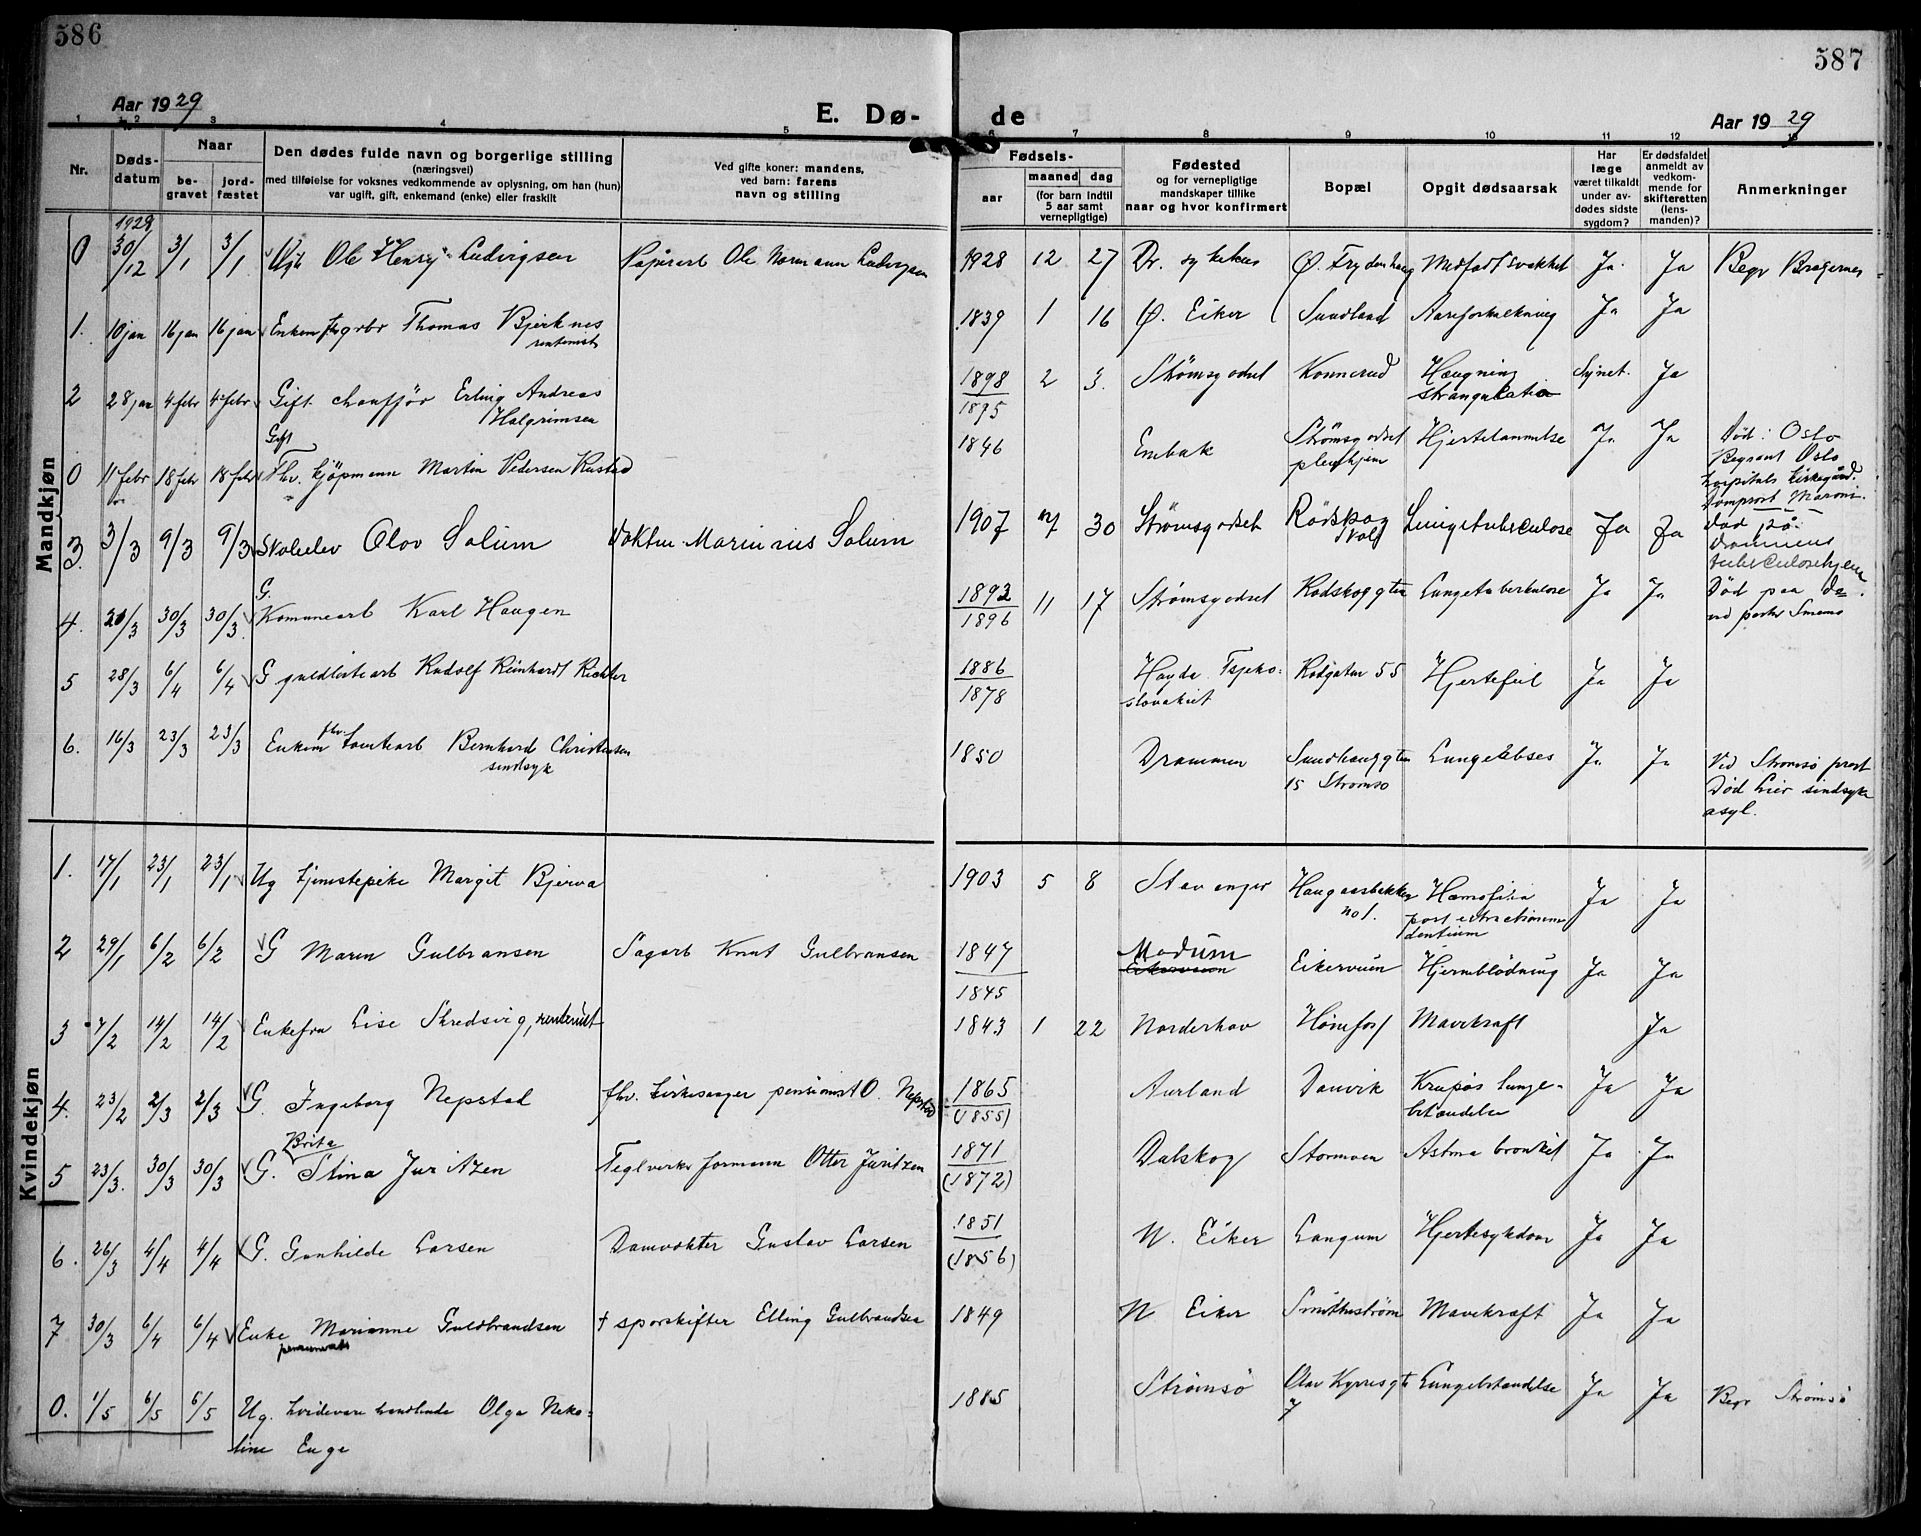 586
587
Aar 1929
E. Dø-
de
Aar 1929
1 2 3 4 5 6 7 8 9 10 11 12 13
Nr.
Døds-
datum
Naar
be-
gravet
jord-
fæstet
Den dødes fulde navn og borgerlige stilling
(næringsvei)
med tilføielse for voksnes vedkommende av oplysning, om han (hun)
var ugift, gift, enkemand (enke) eller fraskilt
Ved gifte koner: mandens,
ved barn: farens
navn og stilling
Fødsels-
aar
maaned dag
(for barn indtil
5 aar samt
vernepligtige)
Fødested
og for vernepligtige
mandskaper tillike
naar og hvor konfirmert
Bopæl
Opgit dødsaarsak
Har
læge
været tilkaldt
under av-
dødes sidste
sygdom?
Er dødsfaldet
anmeldt av
vedkom-
mende for
skifteretten
(lens-
manden)?
Anmerkninger
Mandkjøn
1928
0 30/12 3/1 3/1 Ole Henry Ludvigsen Papirarb Ole Normann Ludvigsen 1928 12 27 Dr. sykehus Ø. Frydenhaug Medfødt svakhet Ja Ja Begr Bragernes
1. 10 jan 16 jan 16 jan Enkem fhv grbr Thomas Bjerknes 1839 1 16 Ø. Eiker Sundland Aareforkalkning Ja Ja
rentenist
2 28 jan 4 febr 4 febr Gift chauffør Erling Andreas 1898 2 3. Strømsgodset Konnerud Hængning Synet. Ja
Halgrimsen 1895 strangulatio
Gift
0 11 febr 18 febr 18 febr Fhv. kjøpmann Martin Pedersen Rustad 1846 Strømsgodset Hjertelammelse Ja Ja Død i Oslo
pleiehjem Begravet Oslo
hospitals kirkegård.
Domprost Maroni.
3. 3/3 9/3 9/3 Skoleelev Olov Solum Marinius Solum 1907 7 30 Strømsgodset Rødskog Lungetuberculose Ja Ja død på
skole Drammens
tuberculosehjem
G.
4. 20/3 30/3 30/3. Komunearb Karl Haugen 1892 11 17 Strømsgodset Rødskoggten Lungetuberkulose Ja Ja Død paa Do.
1896
5 28/3 6/4 6/4 G guldlistearb Rudolf Reinhardt Richter 1886 Hayda Tsjeko- Rødgaten 55 Hjertefeil Ja Ja
1878 slovakiet
6. 16/3 23/3 23/3 Enkem fhv. tomtearb Bernhard Christensen 1850 Drammen Sundhauggten Lungeabses Ja Ja Ved Strømsø prest
sindsyk 15 Strømsø Død Lier sindsyke
asyl.
Kvindekjøn
1. 17/1 23/1 23/1 Ug tjenestepike Margit Bjerva 1903 5 8 Stavanger Haugaasbakken Hæmofilia Ja Ja
no 1. post extractionem
dentium
2 29/1 6/2 6/2 G Maren Gulbransen Sagarb Knut Gulbransen 1847 Modum Eikerveien Hjerneblødning Ja Ja
1845
3 7/2 14/2 14/2 Enkefru Lise Skredsvig, rentenist 1843 1 22 Norderhov Hønefoss Mavekræft Ja
4. 23/2 2/3 2/3 G. Ingeborg Nepstad fhv. kirkesanger pensionist O. Nepstad 1865 Aurland Danvik Krupøs lunge- Ja Ja
(1855) betændelse
Brita
5 23/3. 30/3 30/3 G. Stina Juritzen Teglverks formann Otter Juritzen 1871 Dalskog Stormoen Astma bronkit Ja Ja
(1872)
6. 26/3 4/4 4/4 G. Gunhilde Larsen Damvokter Gustav Larsen 1851 N. Eiker Langum Hjertesykdom Ja Ja
(1856)
7 30/3 6/4 6/4 Enke Marianne Guldbrandsen † sporskifter Elling Gulbrandsen 1849 N Eiker Smithestrøm Mavekræft Ja Ja
0. 1/5 6/5 6/5 Ug. hvidevare handlende Olga Neko- 1885 Strømsø Olav Kyrresgt Lungebetændelse Ja Ja Begr Strømsø
line Enge 7